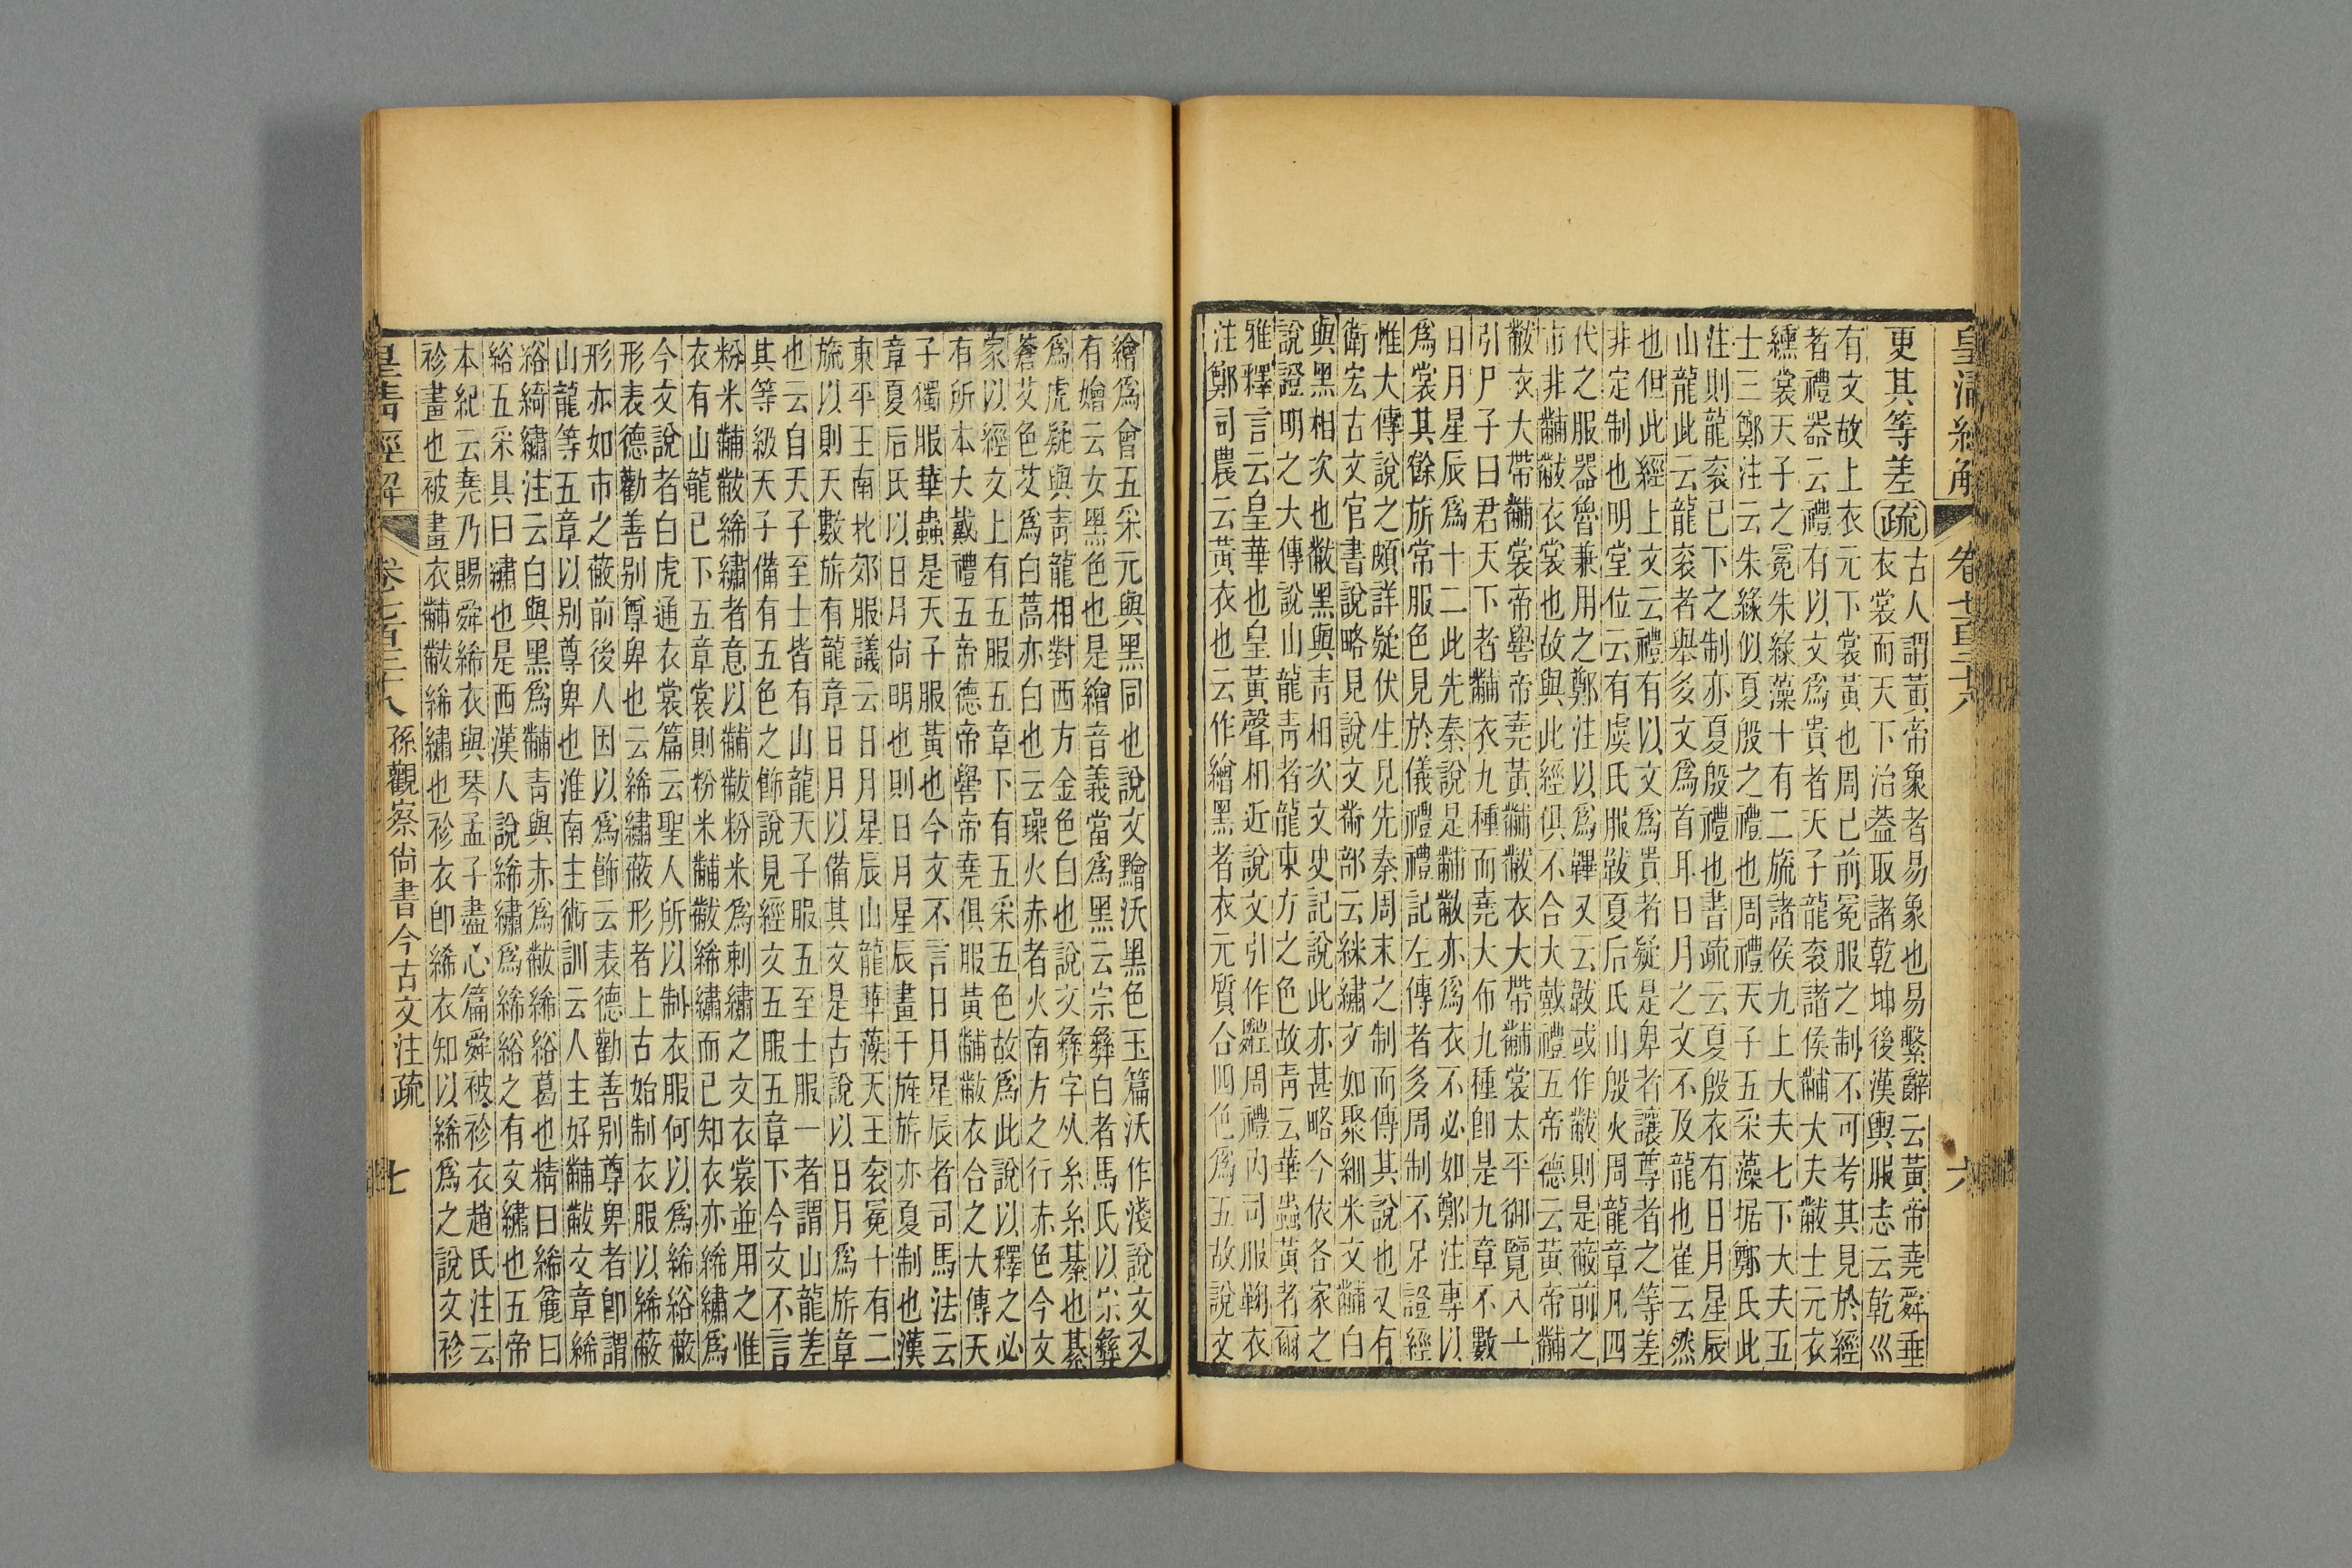 皇清經解
卷七百三十八
六
更其等差疏
古人謂黃帝象者易象也易繫辭云黃帝堯舜垂
衣裳而天下治葢取諸乾坤後漢輿服志云乾巛
有文故上衣元下裳黃也周己前冕服之制不可考其見於經
者禮器云禮有以文爲貴者天子龍袞諸侯黼大夫黻士元衣
纁裳天子之冕朱綠藻十有二旒諸侯九上大夫七下大夫五
士三鄭注云朱綠似夏殷之禮也周禮天子五采藻据鄭氏此
注則龍袞已下之制亦夏殷禮也書疏云夏殷衣有日月星辰
山龍此云龍袞者舉多文爲首耳日月之文不及龍也崔云然
也但此經上文云禮有以文爲貴者疑是卑者讓尊者之等差
非定制也明堂位云有虞氏服韍夏后氏山殷火周龍章凡四
代之服器魯兼用之鄭注以爲韠又云韍或作黻則是蔽前之
市非黼黻衣裳也故與此經俱不合大戴禮五帝德云黃帝黼
黻衣大帶黼裳帝嚳帝堯黃黼黻衣大帶黼裳太平御覽入
引尸子曰君天下者黼衣九種而堯大布九種卽是九章不數
日月星辰爲十二此先秦說是黼黻亦爲衣不必如鄭注專以
爲裳其餘旂常服色見於儀禮禮記左傳者多周制不足證經
惟大傳說之頗詳疑伏生見先秦周末之制而傳其說也又有
衛宏古文官書說略見說文黹部云絑繡文如聚細米文黼白
與黑相次也黻黑與靑相次文史記說此亦甚略今依各家之
說證明之大傳說山龍靑者龍東方之色故靑云華蟲黃者爾
雅釋言云皇華也皇黃聲相近說文引作䕙周禮內司服鞠衣
注鄭司農云黃衣也云作繪黑者衣元質合四色爲五故說文
繪爲會五采元與黑同也說文黵沃黑色玉篇沃作淺說文又
有嬒云女黑色也是繪音義當爲黑云宗彝白者馬氏以宗彝
爲虎疑與靑龍相對西方金色白也說文彝字从糸糸綦也綦
蒼艾色艾爲白蒿亦白也云璪火赤者火南方之行赤色今文
家以經文上有五服五章下有五采五色故爲此說以釋之必
有所本大戴禮五帝德帝嚳帝堯俱服黃黼黻衣合之大傳天
子獨服華蟲是天子服黃也今文不言日月星辰者司馬法云
章夏后氏以日月尙明也則日月星辰畫于旌旂亦夏制也漢
東平王南北郊服議云日月星辰山龍華藻天王袞冕十有二
旒以則天數旂有龍章日月以備其文是古說以日月爲旂章
也云自天子至士皆有山龍天子服五至士服一者謂山龍差
其等級天子備有五色之飾說見經文五服五章下今文不言
粉米黼黻絺繡者意以黼黻粉米爲刺繡之文衣裳並用之惟
衣有山龍已下五章裳則粉米黼黻絺繡而已知衣亦絺繡爲
今文說者白虎通衣裳篇云聖人所以制衣服何以爲絺綌蔽
形表德勸善別尊卑也云絺繡蔽形者上古始制衣服以絺蔽
形亦如市之蔽前後人因以爲飾云表德勸善別尊卑者卽謂
山龍等五章以別尊卑也淮南主術訓云人主好黼黻文章絺
綌綺繡注云白與黑爲黼靑與赤爲黻絺綌葛也精曰絺麤曰
綌五采具曰繡也是西漢人說絺繡爲絺綌之有文繡也五帝
本紀云堯乃賜舜絺衣與琴孟子盡心篇舜被袗衣趙氏注云
袗畫也被畫衣黼黻絺繡也袗衣卽絺衣知以絺爲之說文袗
皇淸經解
卷七百三十八
孫觀察尙書今古文注疏
七